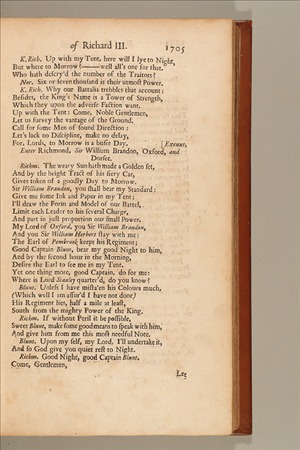 of Richard III. 1705
K. Rich. Up with my Tent, here will I lye to Night,
But where to Morrow?——well all's one for that.
Who hath descry'd the number of the Traitors?
Nor. Six or seven thousand is their utmost Power.
K. Rich. Why our Battalia trebbles that account:
Besides, the King's Name is a Tower of Strength,
Which they upon the adverse Faction want.
Up with the Tent: Come, Noble Gentlemen,
Let us survey the vantage of the Ground.
Call for some Men of sound Direction:
Let's lack no Discipline, make no delay,
For, Lords, to Morrow is a busie Day. [Exeunt.
Enter Richmond, Sir William Brandon, Oxford, and
Dorset.
Richm. The weary Sun hath made a Golden set,
And by the bright Tract of his fiery Car,
Gives token of a goodly Day to Morrow.
Sir William Brandon, you shall bear my Standard:
Give me some Ink and Paper in my Tent;
I'll draw the Form and Model of our Battel,
Limit each Leader to his several Charge,
And part in just proportion our small Power.
My Lord of Oxford, you Sir William Brandon,
And you Sir William Herbert stay with me:
The Earl of Pembrook keeps his Regiment;
Good Captain Blunt, bear my good Night to him,
And by the second hour in the Morning,
Desire the Earl to see me in my Tent.
Yet one thing more, good Captain, do for me:
Where is Lord Stanley quarter'd, do you know?
Blunt. Unless I have mista'en his Colours much,
(Which well I am assur'd I have not done)
His Regiment lies, half a mile at least,
South from the mighty Power of the King.
Richm. If without Peril it be possible,
Sweet Blunt, make some good means to speak with him,
And give him from me this most needful Note.
Blunt. Upon my self, my Lord, I'll undertake it,
And so God give you quiet rest to Night.
Richm. Good Night, good Captain Blunt.
Come, Gentlemen,
Let